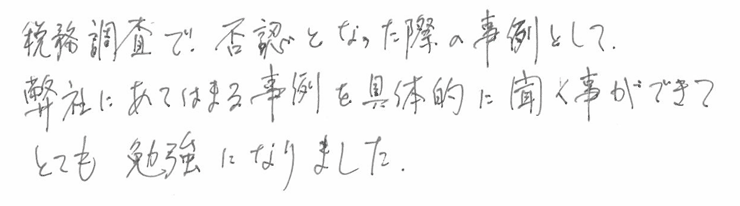 税務調査で、否認となった際の事例として、
弊社にあてはまる事例を具体的に聞く事ができて
とても勉強になりました。